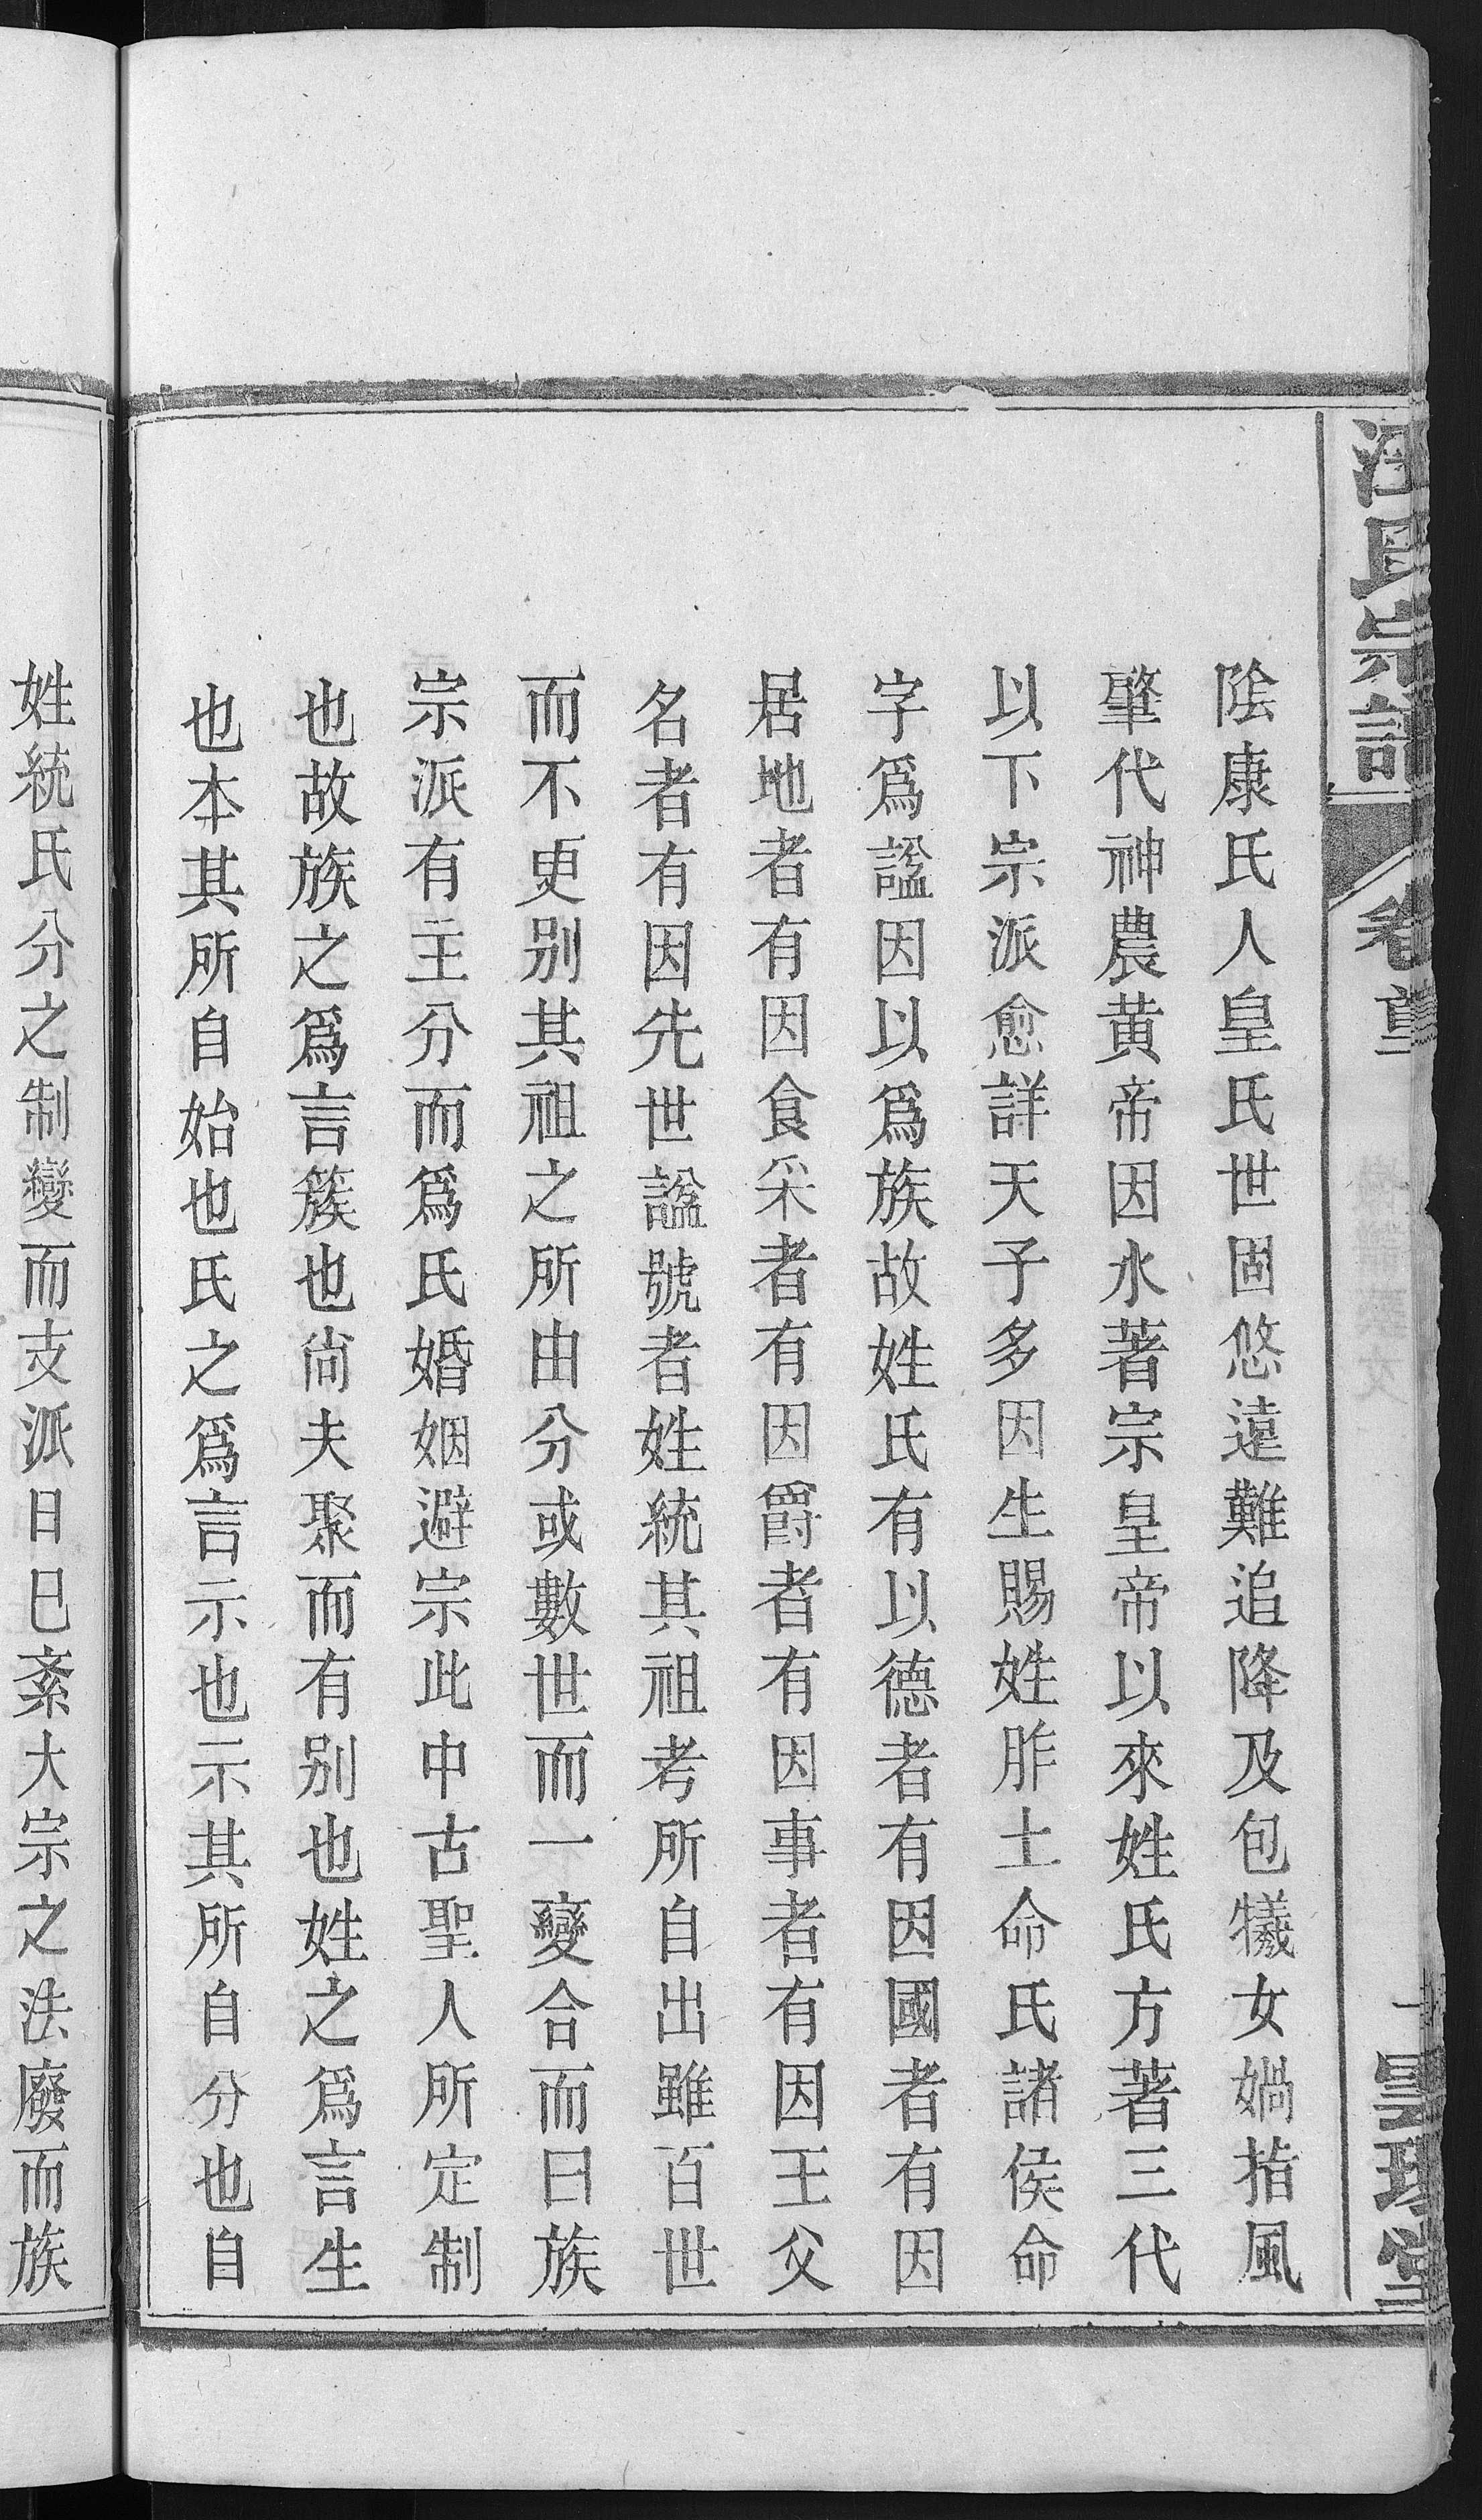 汪氏宗譜
卷首
一
陰康氏人皇氏世固悠遠難追降及包犧女媧指風
肇代神農黄帝因水著宗皇帝以來姓氏方著三代
以下宗派愈詳天子多因生賜姓胙土命氏諸侯命
字爲諡因以爲族故姓氏有以德者有因國者有因
居地者有因食采者有因爵者有因事者有因王父
名者有因先世諡號者姓統其祖考所自出雖百世
而不更别其祖之所由分或數世而一變合而曰族
宗派有主分而爲氏婚姻避宗此中古聖人所定制
也故族之爲言簇也尙夫聚而有别也姓之爲言生
也本其所自始也氏之爲言示也示其所自分也自
姓統氏分之制變而支派日已紊大宗之法廢而族